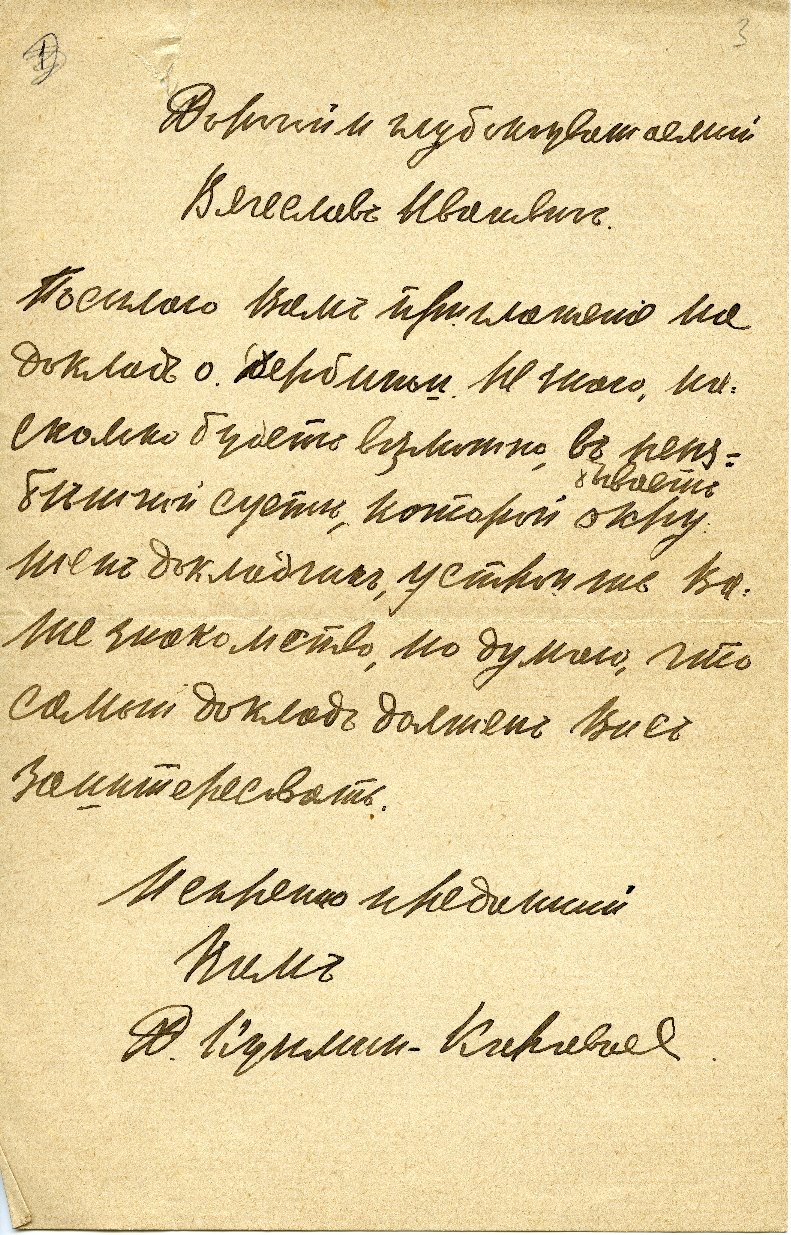 3
Дорогой и глубокоуважаемый
Вячеславъ Ивановичъ.
Посылаю Вамъ приглашенiе на
докладъ о. Щербины. Не знаю, на-
сколько будетъ возможно, въ неиз-
бѣжной суетѣ, которой окру
бываетъ
женъ докладчикъ, устроить Ва-
ше знакомство, но думаю, что
самый докладъ долженъ Васъ
заинтересовать.
Искренно преданный
Вамъ
Д. Кузьмин-Караваев